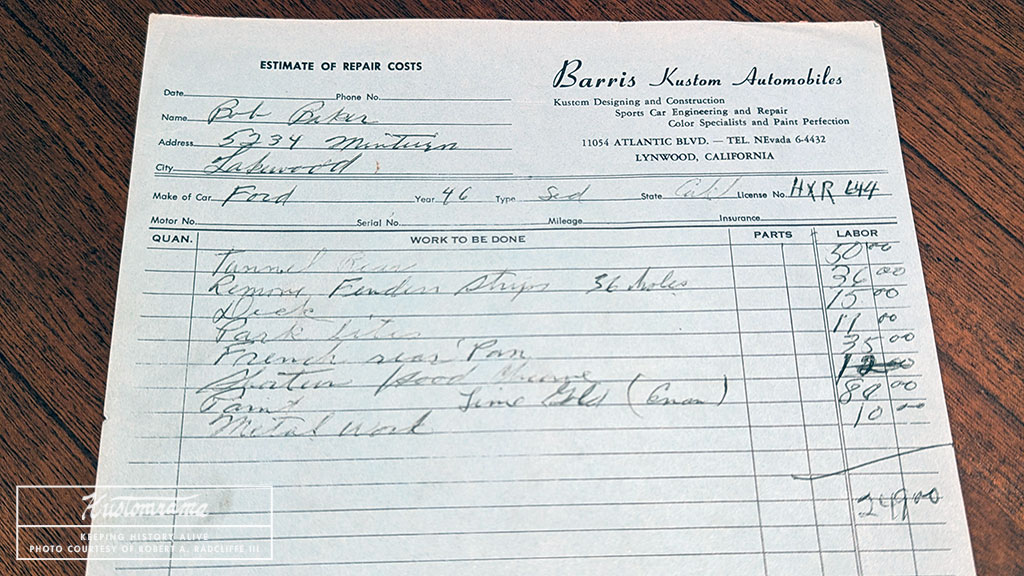 ESTIMATE OF REPAIR COSTS
Barris Kustom Automobiles
Kustom Designing and Construction
Sports Car Engineering and Repair
Color Specialists and Paint Perfection
11054 ATLANTIC BLVD. — TEL. NEvada 6-4432
LYNWOOD, CALIFORNIA
Date Phone No.
Name Bob Baker
Address 5734 Minturn
City Lakewood
Make of Car Ford Year 46 Type Sed State Calif License No. HXR 644
Motor No. Serial No. Mileage Insurance
QUAN. WORK TO BE DONE PARTS LABOR
Tunnel Rear 50 00
Remove Fender Strips 36 holes 36 00
Deck 15 00
Park Lites 11 00
French rear Pan 35 00
Hood
Paint Lime Gold ( ) 00
Metal Work 10
249 00
Kustomrama
KEEPING HISTORY ALIVE
PHOTO COURTESY OF ROBERT A. RADCLIFFE III